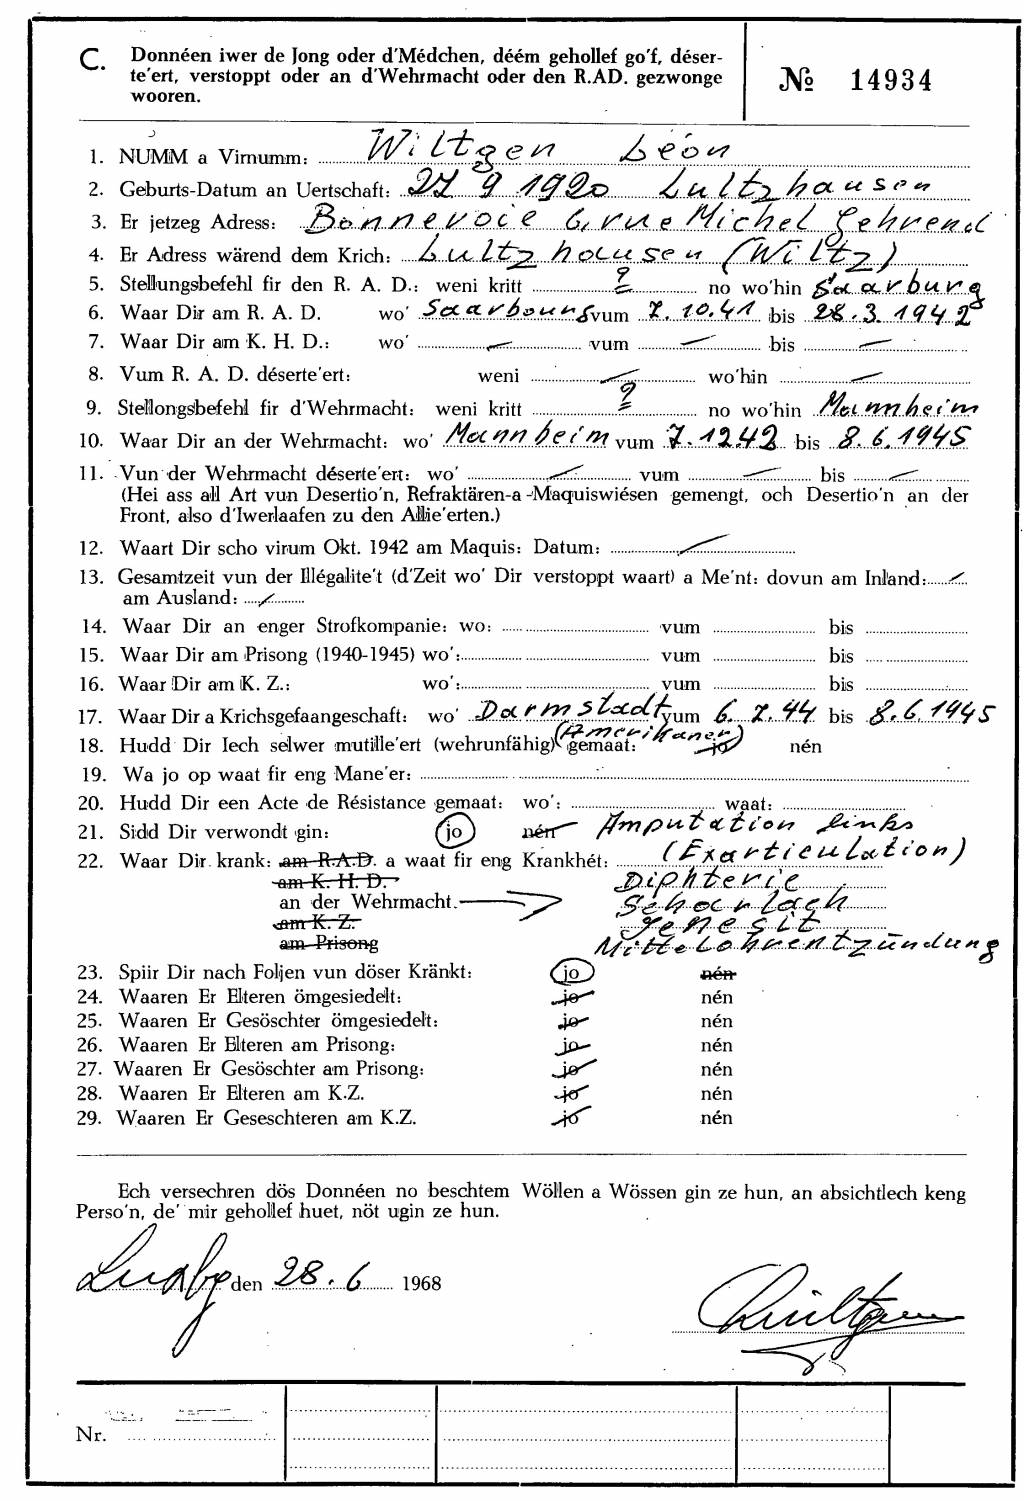 C. Donnéen iwer de Jong oder d'Médchen, déém gehollef go'f, déser-
te'ert, verstoppt oder an d'Wehrmacht oder den R.AD. gezwonge
wooren.
№ 14934
1. NUMM a Virnumm: Wiltgen Léon
2. Geburts-Datum an Uertschaft: 27 9 1920 Lultzhausen
3. Er jetzeg Adress: Bonnevoie 6, rue Michel Gehrend
4. Er Adress wärend dem Krich: Lultzhausen (Wiltz)
5. Stellungsbefehl fir den R. A. D.: weni kritt ? no wo'hin Saarburg
6. Waar Dir am R. A. D. wo' Saarbourg vum 7.10.41 bis 28.3.1942
7. Waar Dir am K. H. D.: wo' — vum — bis —
8. Vum R. A. D. déserte'ert: weni — wo'hin —
9. Stellongsbefehl fir d'Wehrmacht: weni kritt ? no wo'hin Mannheim
10. Waar Dir an der Wehrmacht: wo' Mannheim vum 7.12.42 bis 8.6.1945
11. Vun der Wehrmacht déserte'ert: wo' — vum — bis —
(Hei ass all Art vun Desertio'n, Refraktären-a-Maquiswiésen gemengt, och Desertio'n an der
Front, also d'Iwerlaafen zu den Allie'erten.)
12. Waart Dir scho virum Okt. 1942 am Maquis: Datum: —
13. Gesamtzeit vun der Illégalite't (d'Zeit wo' Dir verstoppt waart) a Me'nt: dovun am Inland: —
am Ausland: —
14. Waar Dir an enger Strofkompanie: wo: vum bis
15. Waar Dir am Prisong (1940-1945) wo': vum bis
16. Waar Dir am K. Z.: wo': vum bis
17. Waar Dir a Krichsgefaangeschaft: wo' Darmstadt vum 6.7.44 bis 8.6.1945
(Amerikaner)
18. Hudd Dir Iech selwer mutille'ert (wehrunfähig) gemaat: jo nén
19. Wa jo op waat fir eng Mane'er:
20. Hudd Dir een Acte de Résistance gemaat: wo': waat:
21. Sidd Dir verwondt gin: jo nén Amputation links
22. Waar Dir krank: am R.A.D. a waat fir eng Krankhét: (Exarticulation)
am K. H. D. Diphterie
an der Wehrmacht. Scharlach
am K. Z.
am Prisong Mittelohrentzündung
23. Spiir Dir nach Foljen vun döser Kränkt: jo nén
24. Waaren Er Elteren ömgesiedelt: jo nén
25. Waaren Er Gesöschter ömgesiedelt: jo nén
26. Waaren Er Elteren am Prisong: jo nén
27. Waaren Er Gesöschter am Prisong: jo nén
28. Waaren Er Elteren am K.Z. jo nén
29. Waaren Er Geseschteren am K.Z. jo nén
Ech versechren dös Donnéen no beschtem Wöllen a Wössen gin ze hun, an absichtlech keng
Perso'n, de' mir gehollef huet, nöt ugin ze hun.
Luxbg den 28.6 1968
Wiltgen
Nr.